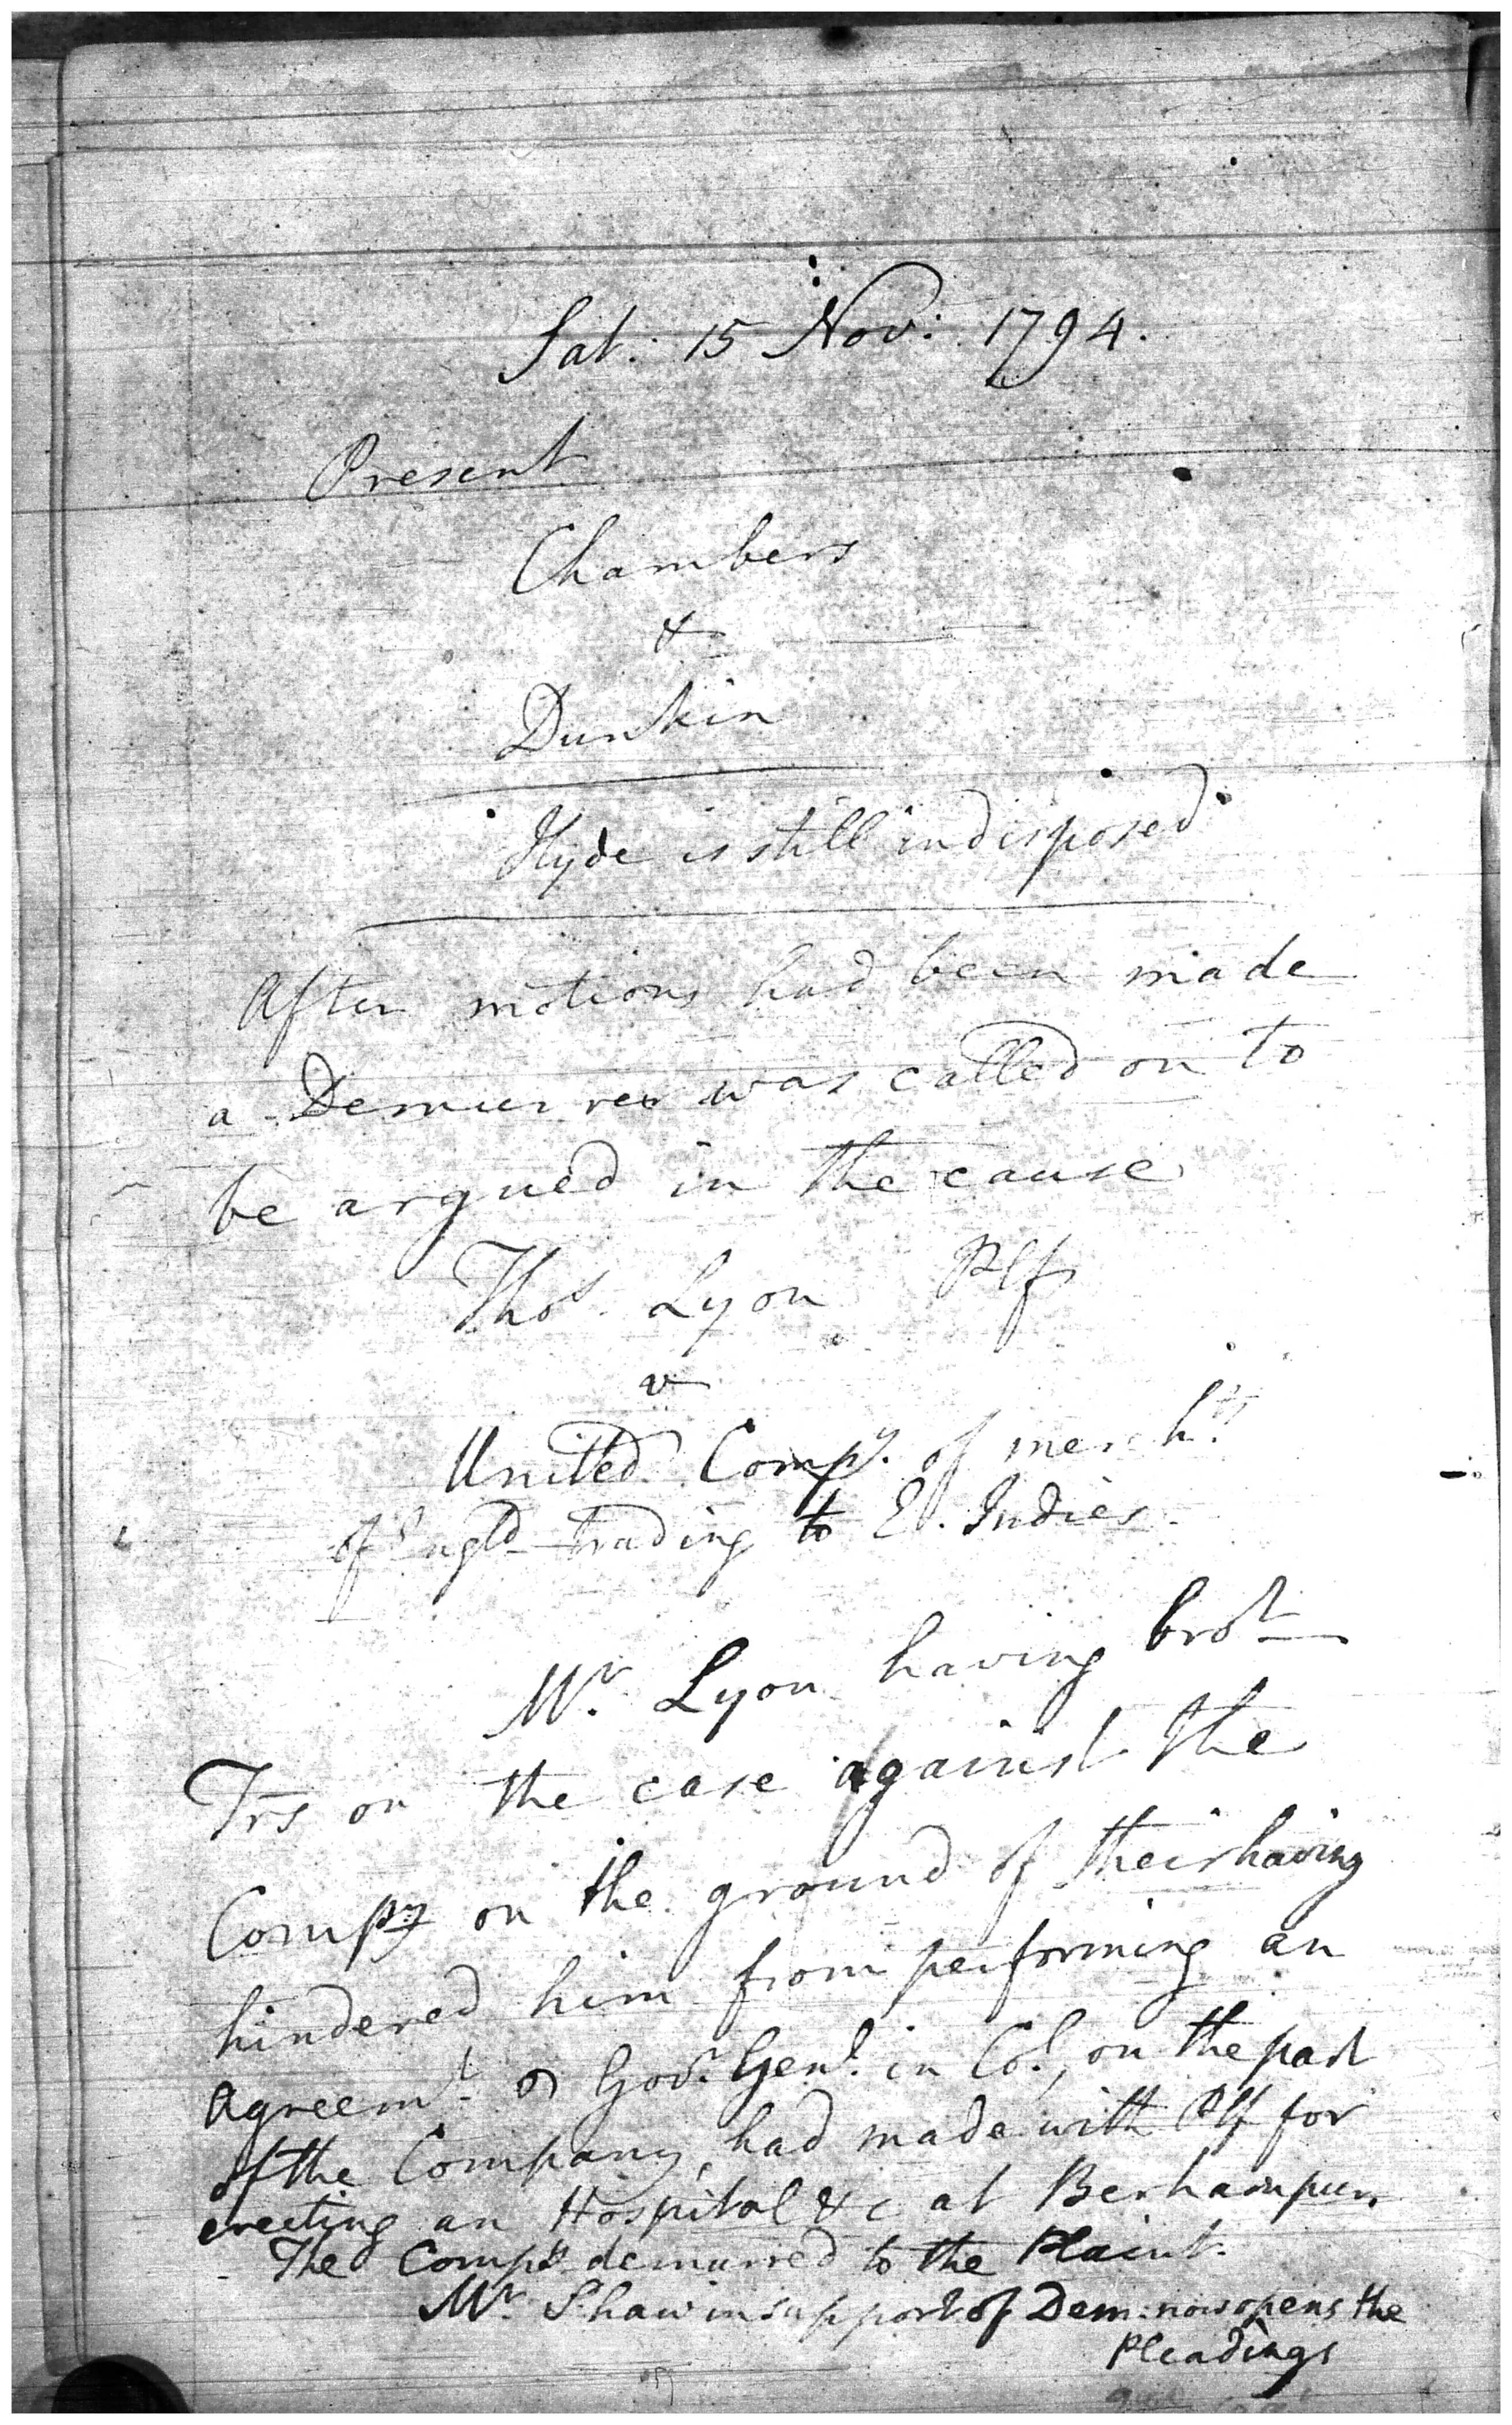 Sat: 15 Nov: 1794.
Present
Chambers
&
Dunkin
Hyde is still indisposed
After motions had been made
a Demurrer was called on to
be argued in the cause
Thos. Lyon Plf
v
United Compy. of mercht.s
of Engld trading to E. Indies.
Mr. Lyon having brot
Trs on the case against the
Compy on the ground of their having
hindered him from performing an
Agreemt. Govr. Genl. in Col, on the part
of the Company, had made with Plf for
erecting an Hospital &c at Berhampur.
The Compy demurred to the Plaint.
Mr. Shaw in support of Dem: now opens the
Pleadings